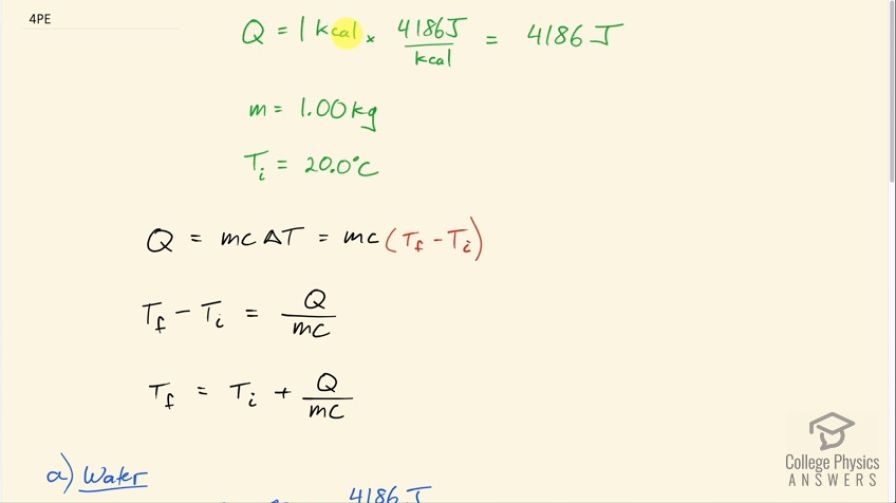 4PE
Q = 1 kcal × 4186J/kcal = 4186 J
m = 1.00 kg
Ti = 20.0°C
Q = mcΔT = mc(Tf − Ti)
Tf − Ti = Q/mc
Tf = Ti + Q/mc
a) Water
4186 J
College Physics
ANSWERS